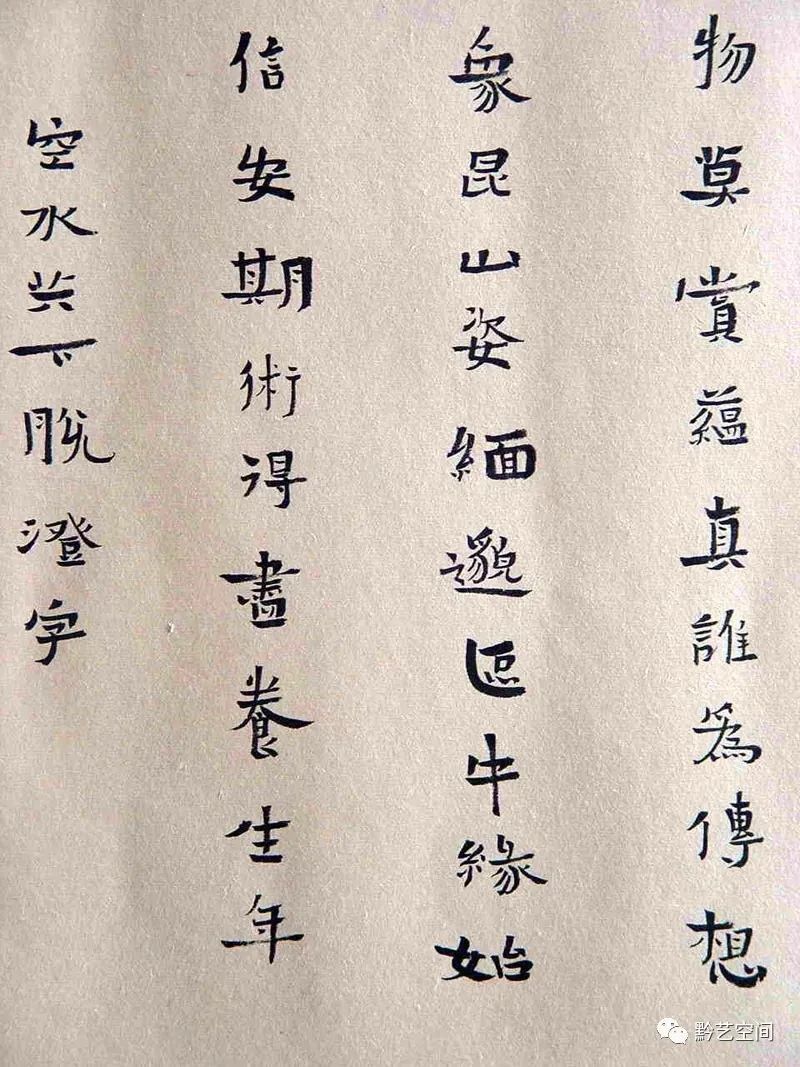 物莫賞蘊真誰為傳想
象昆山姿緬邈區中緣始
信安期術得盡養生年
空水共下脫澄字
黔艺空间